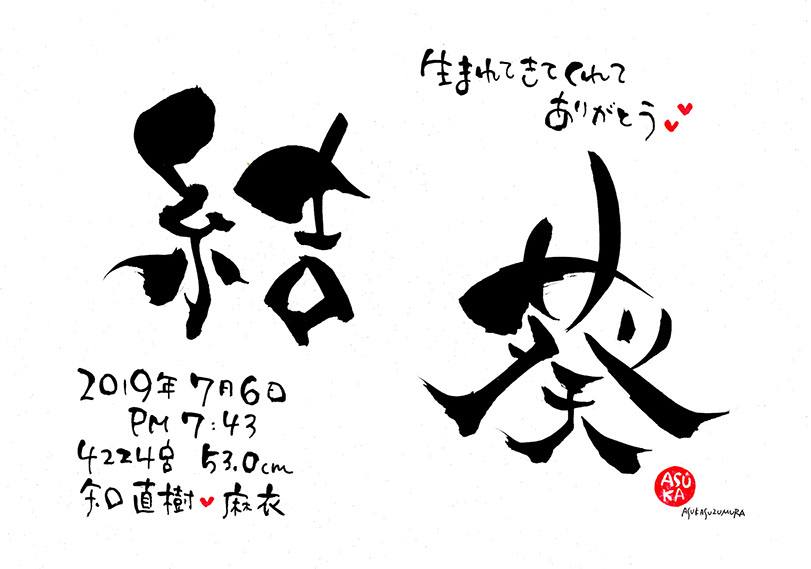 生まれてきてくれて
ありがとう
結 葵
2019年 7月6日
PM 7:43
4224g 53.0cm
知 直樹♥麻衣
ASU
KA
ASUKASUZUMURA